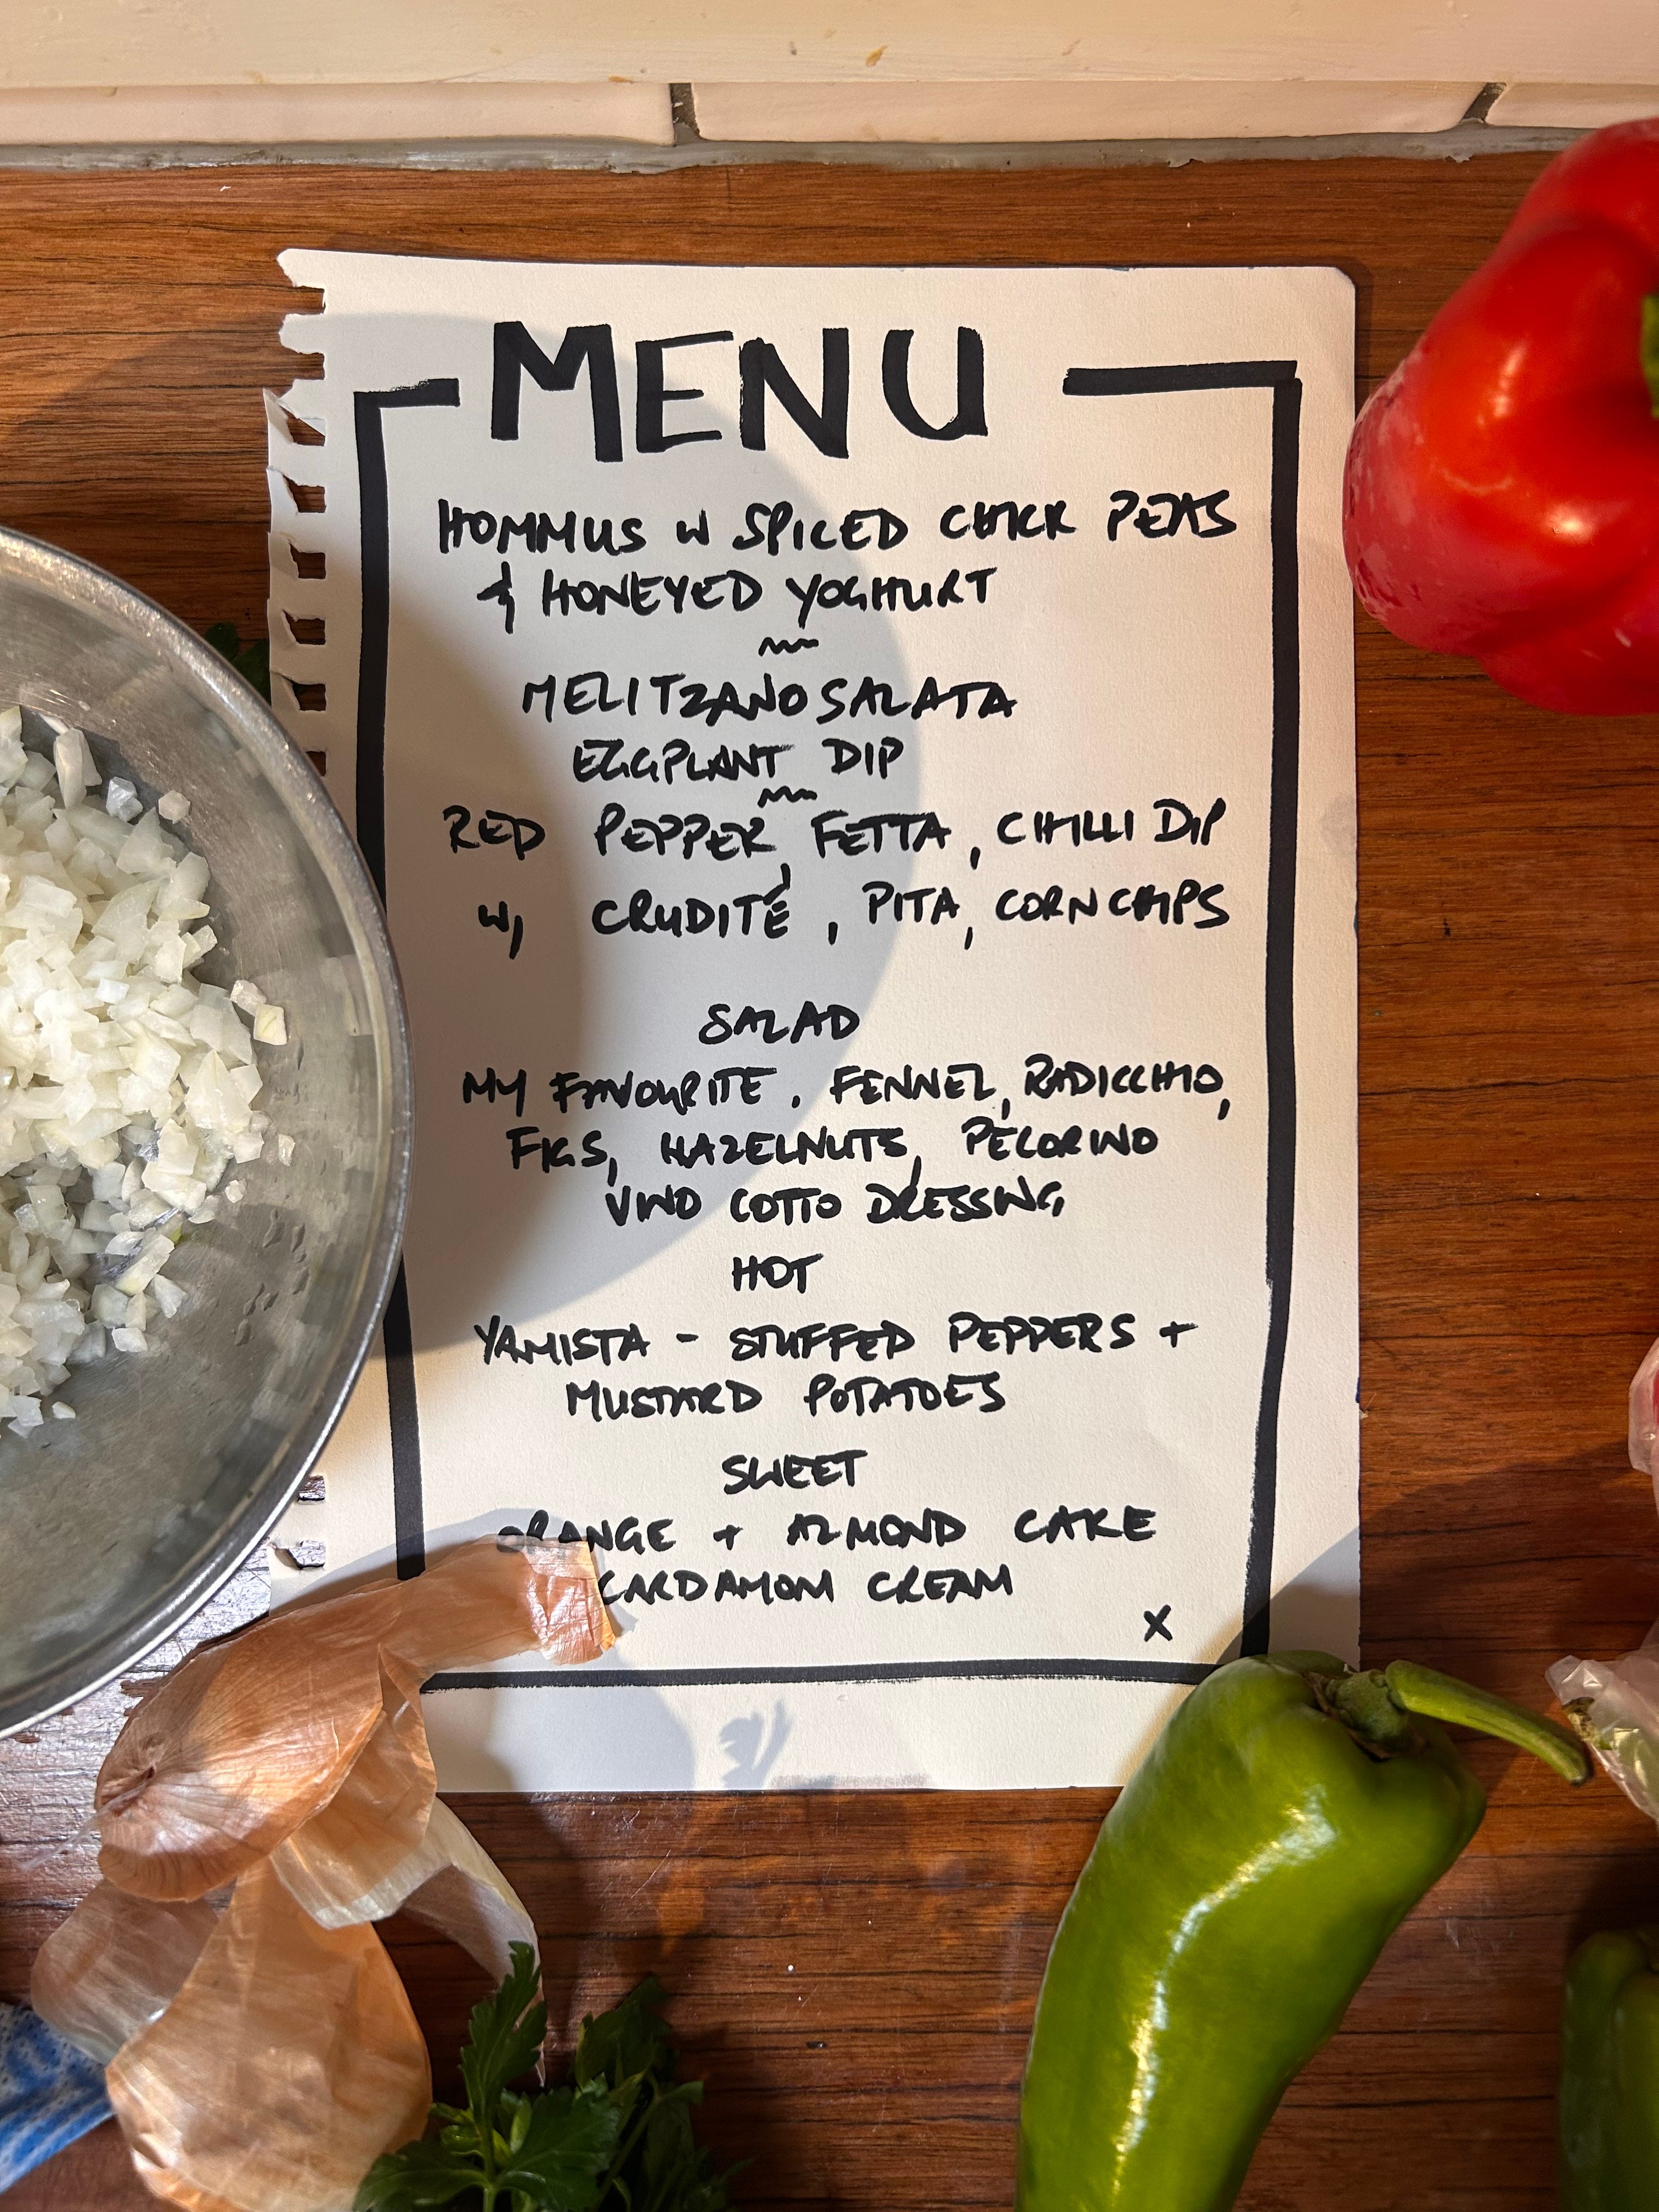 MENU
HOMMUS W SPICED CHICK PEAS
& HONEYED YOGHURT
~
MELITZANOSALATA
EGGPLANT DIP
~
RED PEPPER, FETTA, CHILLI DIP
W/ CRUDITÉ, PITA, CORN CHIPS
SALAD
MY FAVOURITE. FENNEL, RADICCHIO,
FIGS, HAZELNUTS, PECORINO
VINO COTTO DRESSING
HOT
YAMISTA - STUFFED PEPPERS +
MUSTARD POTATOES
SWEET
ORANGE + ALMOND CAKE
CARDAMOM CREAM
X